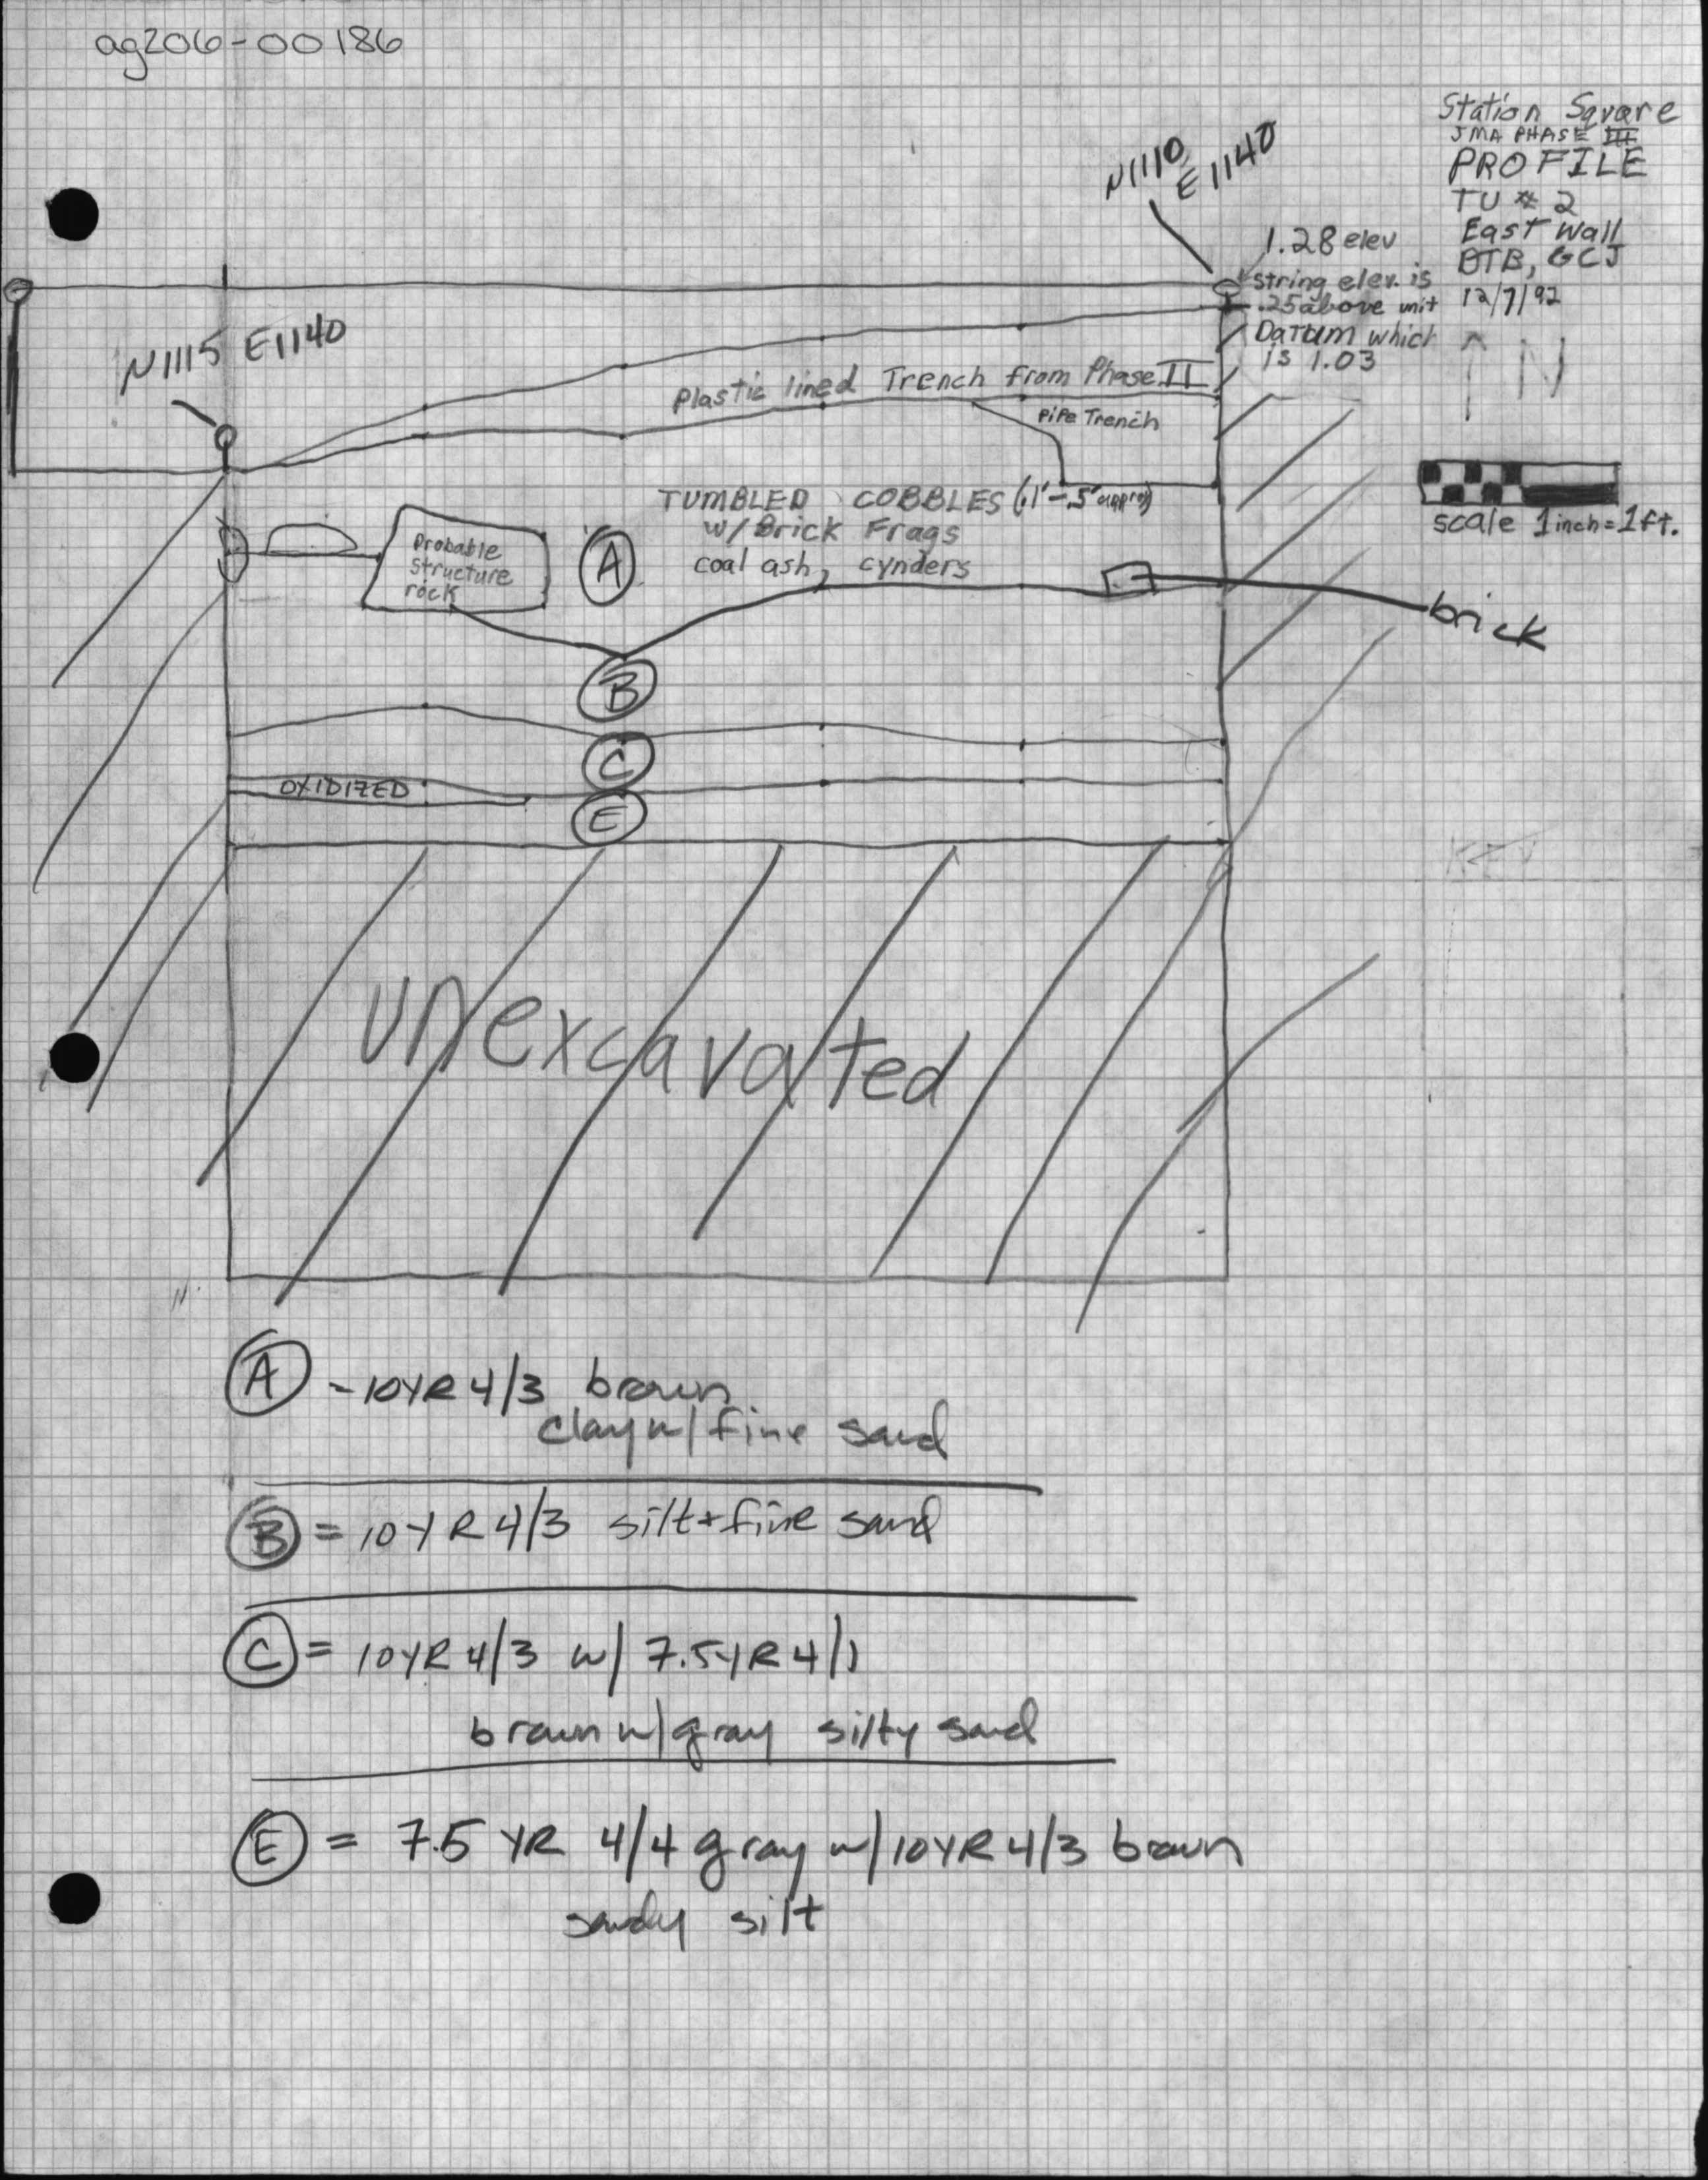 ag206-00186
Station Square
JMA PHASE III
PROFILE
TU # 2
East Wall
BTB, GCJ
12/7/92
N
N1110
E1140
1.28 elev
string elev. is
.25 above unit
Datum which
is 1.03
N1115 E1140
Plastic lined Trench from Phase II
Pipe Trench
TUMBLED COBBLES (.1'-.5' approx)
w/ Brick Frags
coal ash, cynders
scale 1 inch = 1 ft.
Probable
structure
rock
A
brick
B
C
OXIDIZED
E
KEY
unexcavated
N
A - 10YR 4/3 brown
clay w/ fine sand
B = 10YR 4/3 silt + fine sand
C = 10YR 4/3 w/ 7.5YR 4/1
brown w/ gray silty sand
E = 7.5 YR 4/4 gray w/ 10YR 4/3 brown
sandy silt